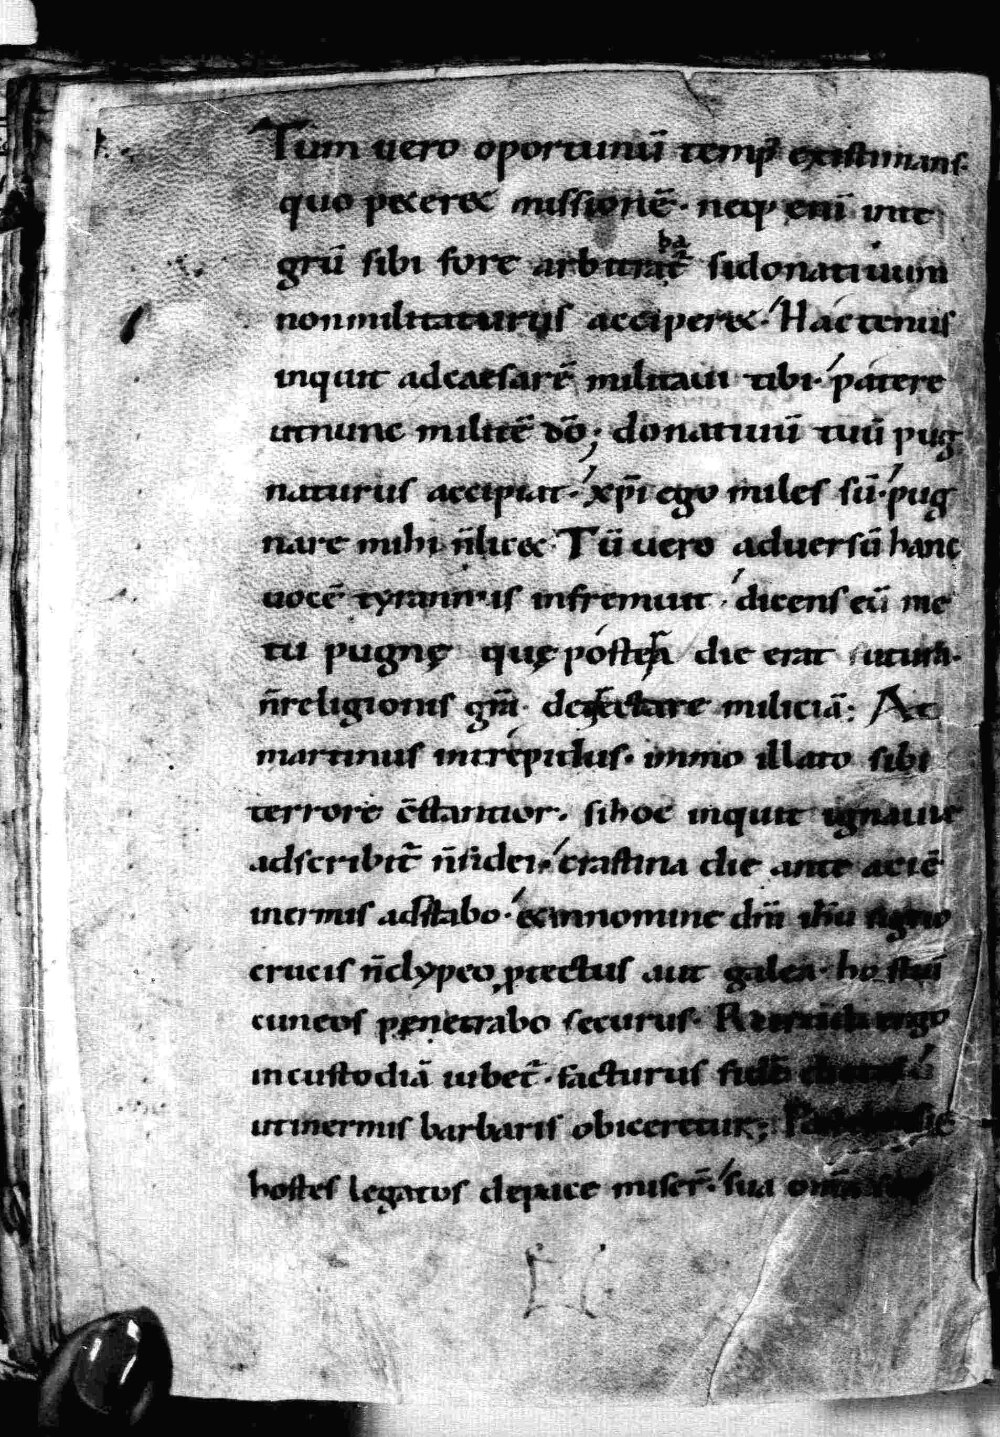 Tum uero oportunū temp⁹ existimans·
quo peteret missionē· neq; enī inte
grū sibi fore arbitrat᷑ ba si donatiuum
non militaturus acciperet· Hactenus
inquit ad caesarē militaui tibi· patere
ut nunc militē dō; donatiuū tuū pug
naturus accipiat· xp̄i ego miles sū· pug
nare mihi n̄ licet· Tū uero aduersū hanc
uocē tyrannus infremuit· dicens eū me
tu pugnę quę postera die erat futura·
n̄ religionis gr̄a· detrectare miliciā; At
martinus intrepidus· immo illato sibi
terrore c̄stantior· si hoc inquit ignauie
adscribit᷑ n̄ fidei· crastina die ante aciē
inermis adstabo· et in nomine dn̄i ih̄u signo
crucis n̄ clypeo ꝓtectus aut galea· hostiū
cuneos penetrabo securus· Retrudi ergo
in custodiā iubet᷑· facturus fidē dictis
ut inermis barbaris obiceretur; Postera die
hostes legatos de pace miser̄· sua om̄ia